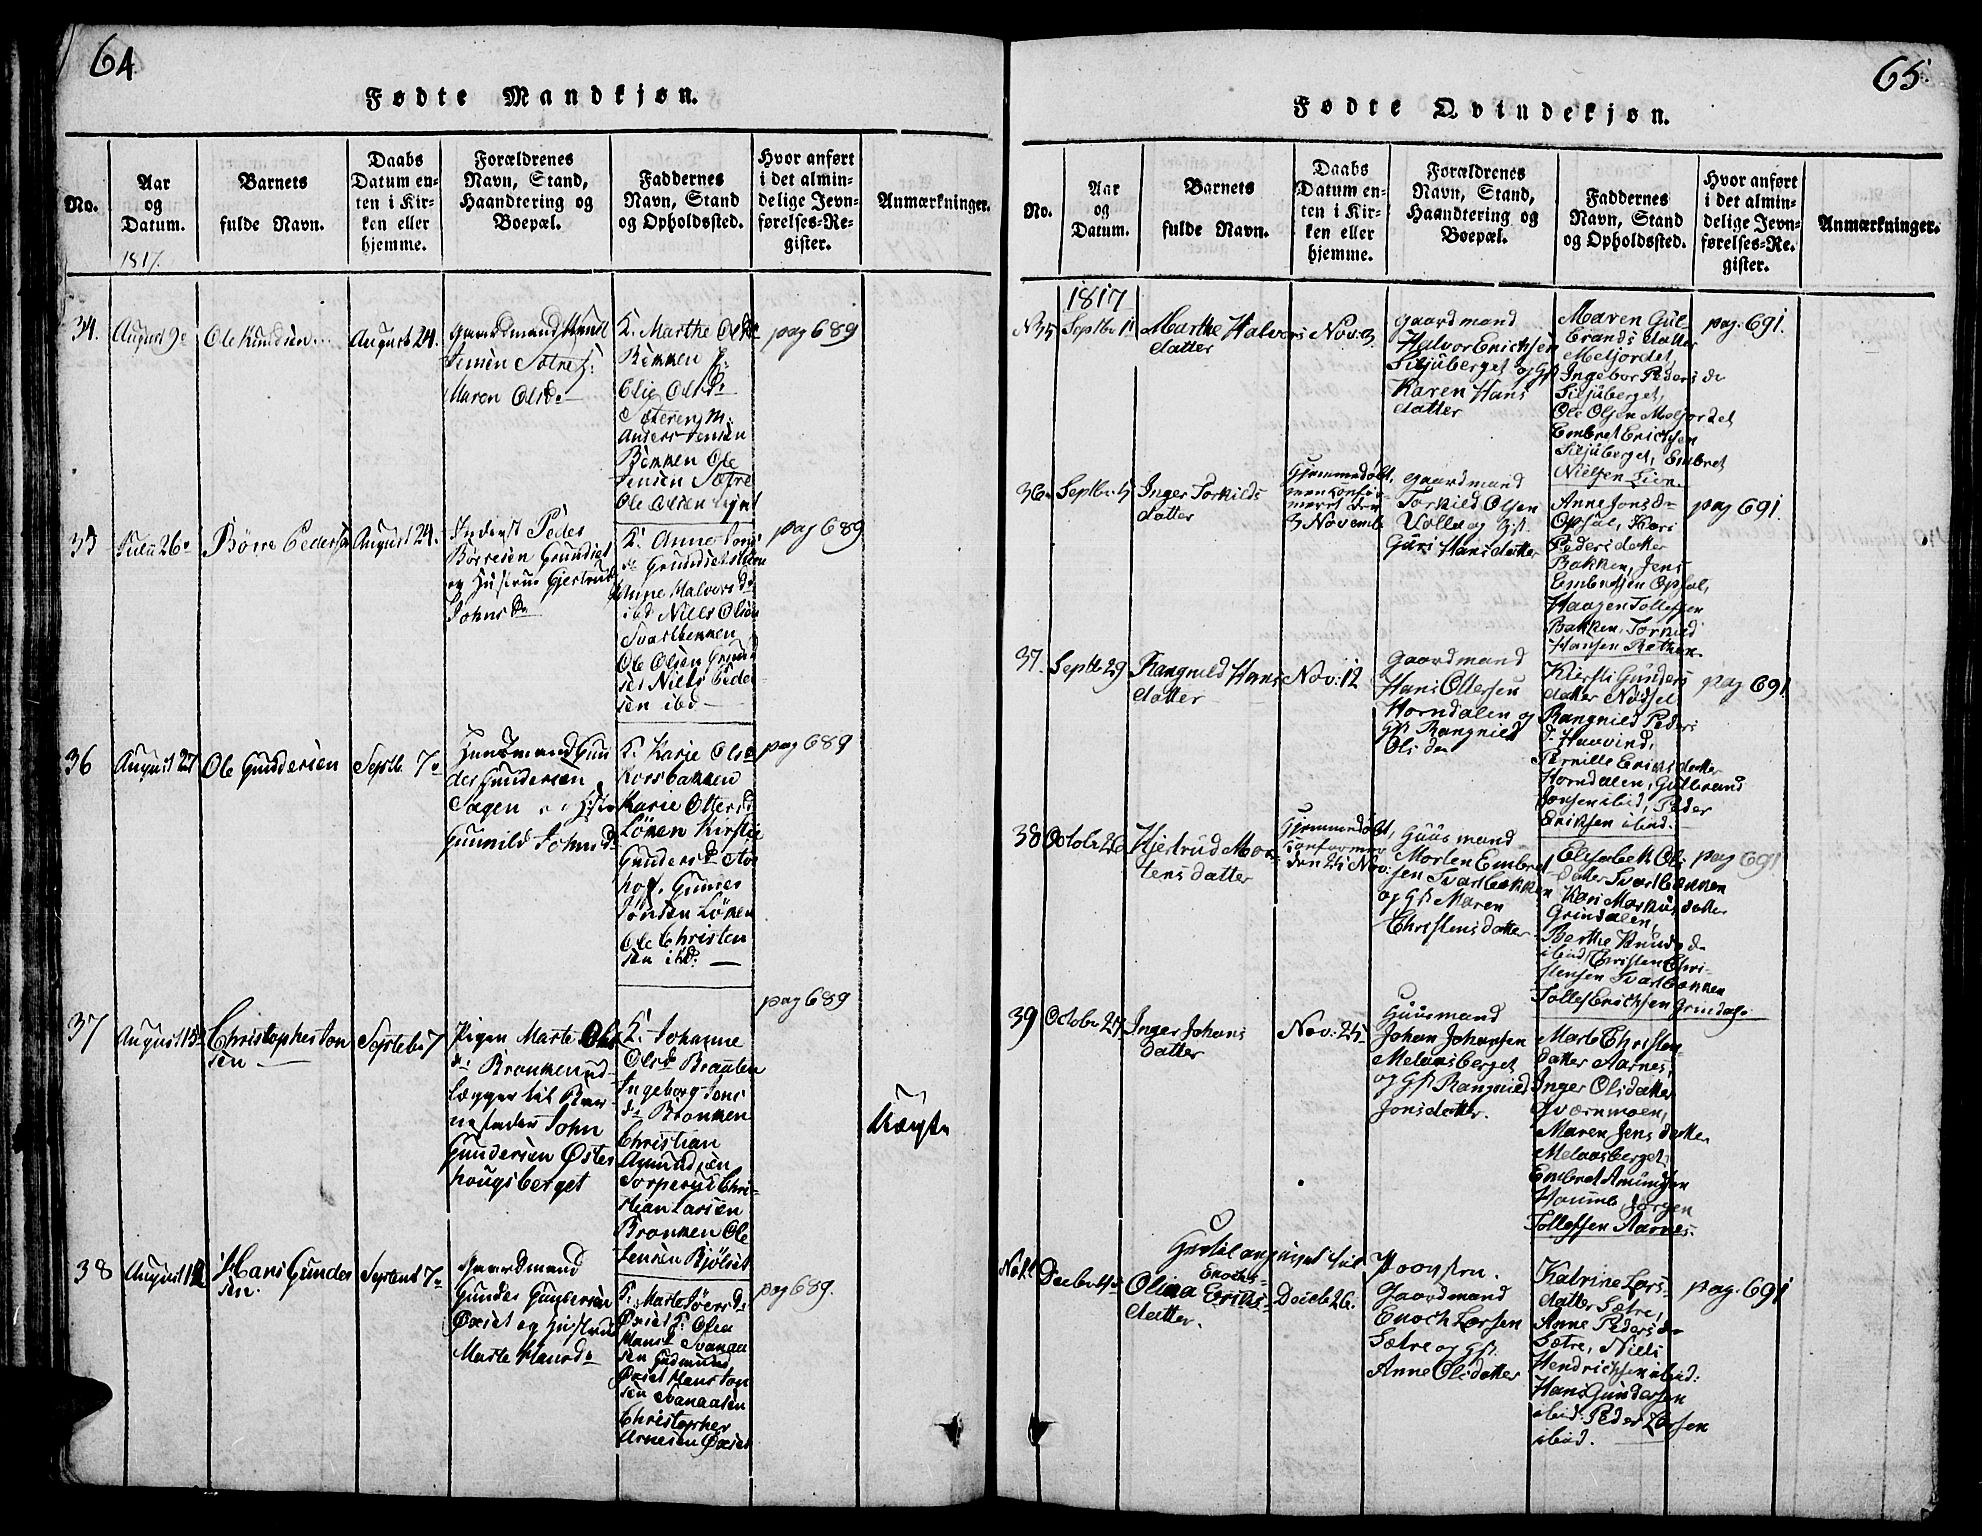 64
Fødte Mandkjøn.
No.
Aar
og
Datum.
Barnets
fulde Navn.
Daabs
Datum en-
ten i Kir-
ken eller
hjemme.
Forældrenes
Navn, Stand,
Haandtering og
Boepæl.
Faddernes
Navn, Stand
og Opholdssted.
Hvor anført
i det almin-
delige Jevn-
førelses-Re-
gister.
Anmærkninger.
1817.
34.
August 9
Ole Knudsen
August 24.
Gaardmand Knud
Jensen Sætre
Maren Olsd
K. Marthe Olsd
Bekken
Olie Olsd
Sæteren M.
Anders Jensen
Bekken Ole
Jensen Sætre
Ole Olsen
pag 689
35
Julii 26
Børre Pedersen
August 24.
Inderst Peder
Børresen Grundset
og Hustrue Gjertrud
Johnsd
K. Anne Jons
d Grundset
Anne Halvorsd
ibd Niels Olsen
Svartbekken
Ole Olsen Grund
set Niels Peder
sen ibd
pag 689
36
August 27
Ole Gundersen
Septb. 7
Huusmand Gun
der Gundersen
Gunnild Johnsd
K. Karje Olsd
Korsbakken
Karie Ottersd
Løken Kirstie
Gundersd
Gunder
Jonsen Løken
Ole Christen
sen ibd.
pag 689
37
August 15
Christopher Jon
sen
Septebr 7
Pigen Marte Ols
d Brænken ud-
lægger til Bar-
nefader John
Gundersen Øster
hougsberget
K. Johanne
Olsd Braaten
Ingeborg Jons
d Brænken
Christian
Amundsen
Torperud Chri-
stian Larsen
Brænken Ole
Jensen Bjølset
pag 689
Uægte
38
August 12
Hans Gunder
sen.
Septemb 7
Gaardmand
Gunder Gundersen
Øxset og Hustrue
Marte Hansd
K. Marte
Øxset
Gudmund
Øxset Hans Jon
sen
Christopher
Arnesen Øxset
pag 689.
65.
Fødte Qvindekjøn.
No.
Aar
og
Datum.
Barnets
fulde Navn.
Daabs
Datum en-
ten i Kir-
ken eller
hjemme.
Forældrenes
Navn, Stand,
Haandtering og
Boepæl.
Faddernes
Navn, Stand
og Opholdssted.
Hvor anført
i det almin-
delige Jevn-
førelses-Re-
gister.
Anmærkninger.
1817
N 35
Septbr 11
Marthe Halvors
datter
Nov. 3
Gaardmand
Halvor Erichsen
Siljuberget og Gst
Karen Hans
datter
Maren Gul-
brands datter
Meljordet,
Ingebor Peders d
Siljuberget,
Ole Olsen Meljordet
Embret Erichsen
Siljuberget, Embret
Nielsen Lien.
pag. 691.
36
Septbr 5
Inger Torkilds
datter
Hjemmedøbt,
men confir-
meret den
3 Novemb
Gaardmand
Torkild Olsen
Volla og Gst.
Guri Hansdatter
Anne Jonsd
Opsal, Kari
Peders datter
Bakken, Jens
Embretsen Opsal,
Haagen Tollefsen
Bakken, Torkild
Hansen Rethen.
pag 691.
37.
Septbr 29
Rangnild Hans
datter
Nov. 12
Gaardmand
Hans Ottersen
Horndalen og
Gst Rangnild
Olsda
Kiersti Gunders
datter Nødset
Rangnild Peders
d. Haavind,
Pernille Eriks datter
Horndalen, Gulbrand
Jonsen ibid, Peder
Eriksen ibid.
pag 691
38
Octobr 26
Hjertrud Mor-
tens datter
Hjemmedøbt,
confirmer
den 25 Nov.
Huusmand
Morten Embret-
sen Svartbekken
og Gst Maren
Christensdatter
Elisabeth Ols
datter Svartbækken
Kari Markus datter
Grindalen,
Berthe Knuds d
ibid, Christen Chri-
stensen Svartbækken
Tollef Erichsen Grindal.
pag 691
39
Octobr 25
Inger Johans
datter
Nov. 25
Huusmand
Johan Johansen
Melaasberget
og Gst Rangnild
Jonsdatter.
Marte Christen-
datter Aarnes,
Inger Olsdatter
Kværnmoen,
Maren Jens datter
Melaasberget,
Embret Amundsen
Jørgen
Tollefsen Aarnes.
No 41
Decbr 4
Olina Enochs-
datter.
Decbr 26.
Gaardmand
Enoch Larsen
Sætre og Gst.
Anne Olsdatter
Katrine Lars-
datter Sætre,
Anne Peders d
Sætre, Niels
Hendrichsen ibid.
Hans Gundersen
ibid. Peder Larsen
ibid.
pag. 691